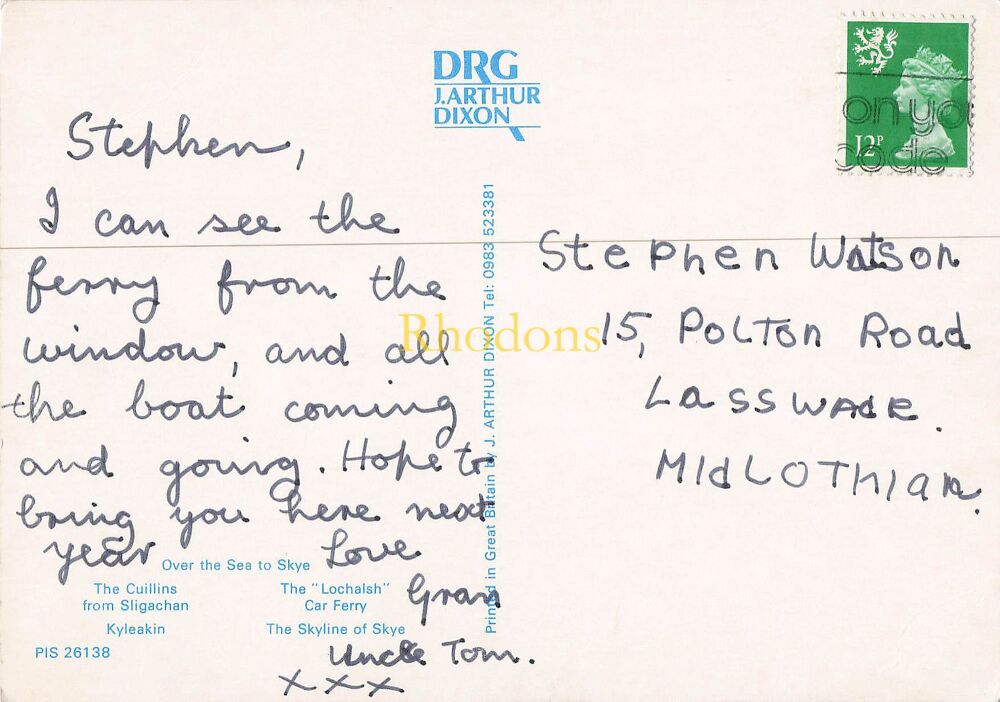 DRG
J.ARTHUR
DIXON
12P
on you
code
Stephen,
I can see the
ferry from the
window, and all
the boat coming
and going. Hope to
bring you here next
year
Love
Gran
Uncle Tom.
x x x
Stephen Watson
15, Polton Road
Lasswade.
Midlothian.
Over the Sea to Skye
The Cuillins
from Sligachan
The "Lochalsh"
Car Ferry
Kyleakin
The Skyline of Skye
PIS 26138
Printed in Great Britain by J. ARTHUR DIXON Tel: 0983 523381
Rhodons